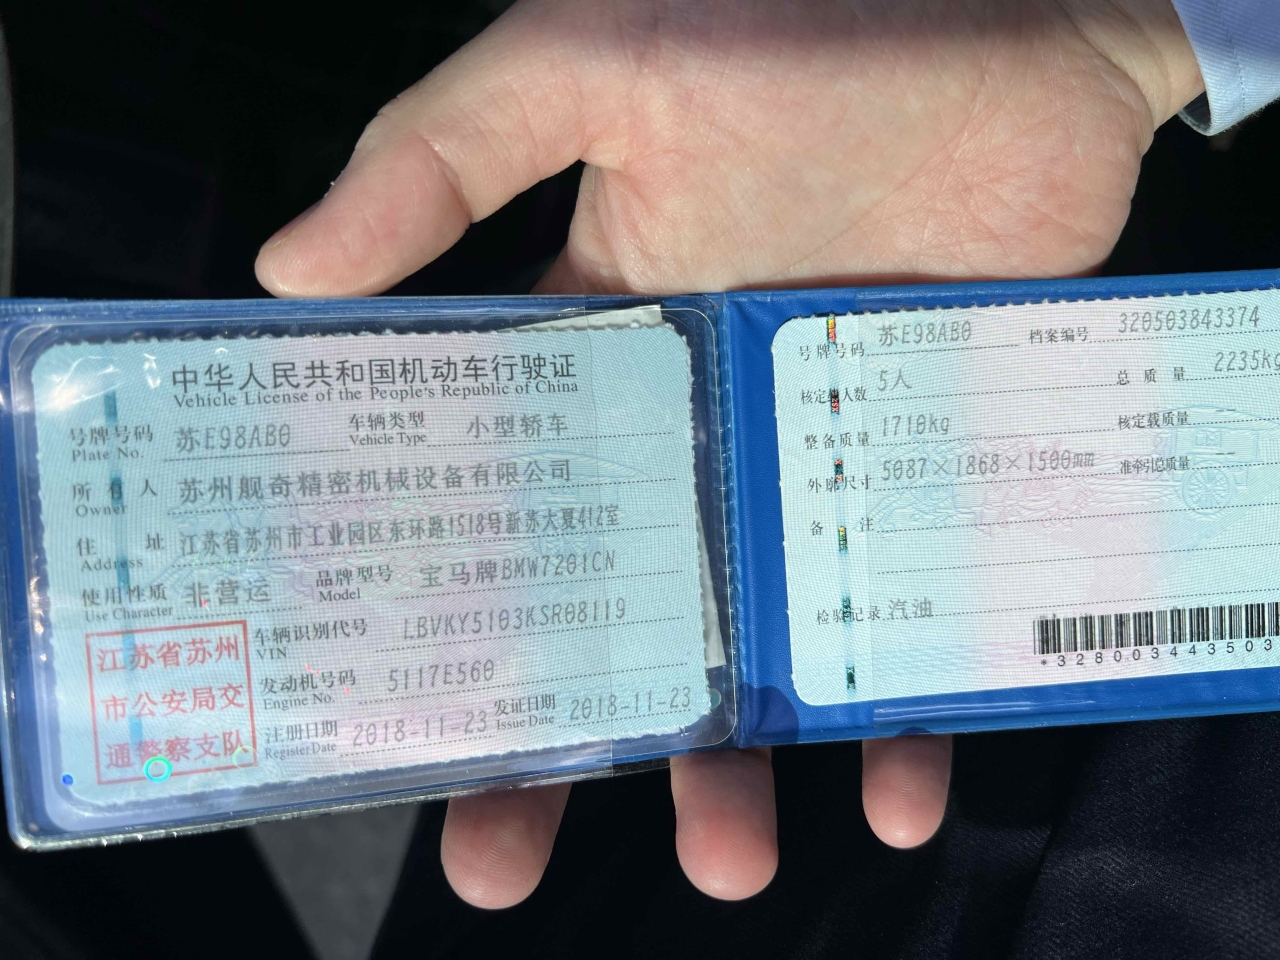 中华人民共和国机动车行驶证
Vehicle License of the People's Republic of China
号牌号码 苏E98AB0 车辆类型 小型轿车
Plate No. Vehicle Type
所有人 苏州舰奇精密机械设备有限公司
Owner
住址 江苏省苏州市工业园区东环路1518号新苏大夏412室
Address
使用性质 非营运 品牌型号 宝马牌BMW7201CN
Use Character Model
江苏省苏州
市公安局交
通警察支队
车辆识别代号 LBVKY5103KSR08119
VIN
发动机号码 5117E560
Engine No.
注册日期 2018-11-23 发证日期 2018-11-23
Register Date Issue Date
号牌号码 苏E98AB0 档案编号 320503843374
核定载人数 5人 总质量 2235kg
整备质量 1710kg 核定载质量
外廓尺寸 5087×1868×1500mm 准牵引总质量 --
备注
检验记录 汽油
*328003443503